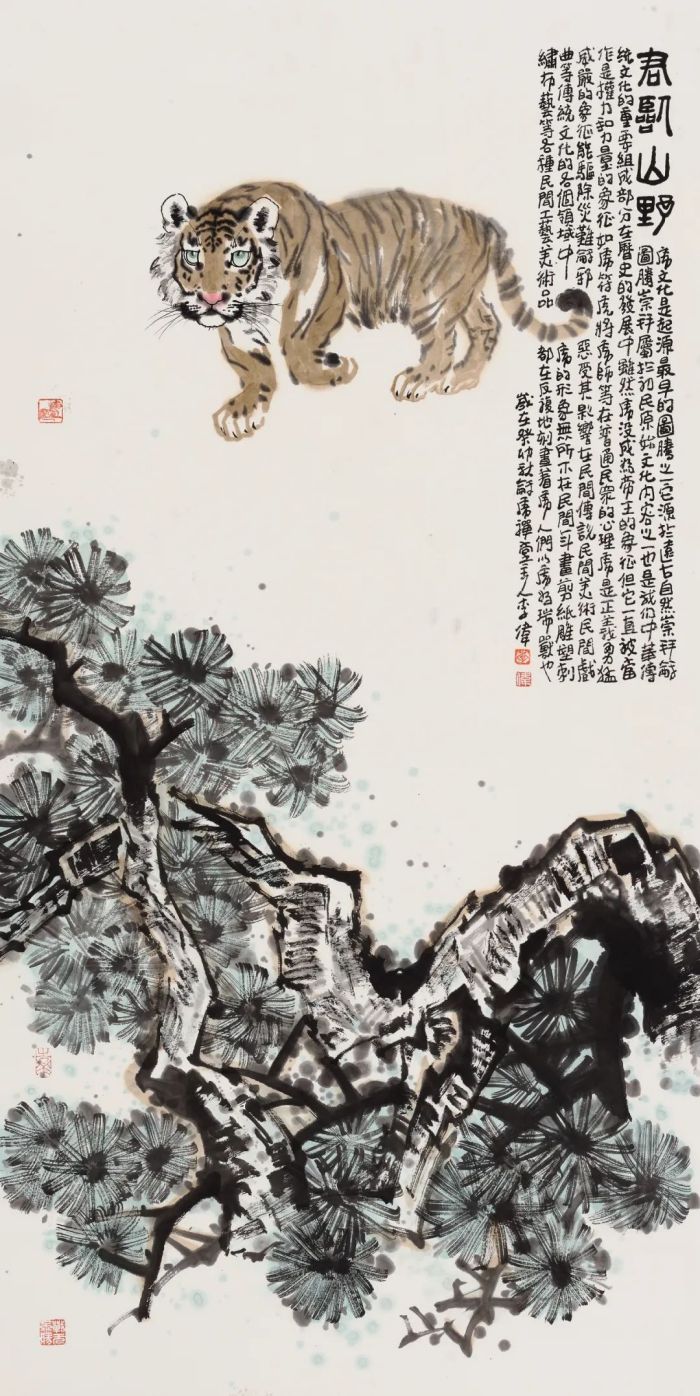 君臨山野
虎文化是起源最早的圖騰之一它源於遠古自然崇拜龢
圖騰崇拜屬於初民原始文化内容之一也是我们中華傳
統文化的重要組成部分在曆史的發展中雖然虎没成為帝王的象征但它一直被當
作是權力和力量的象征如虎符虎將虎師等在普通民衆的心理虎是正義勇猛
威嚴的象征能驅除災難龢邪惡受其影響在民間傳說民間美術民間戲
曲等傳統文化的各個領域中虎的形象無所不在民間年畫剪紙雕塑刺
繡布藝等各種民間工藝美術品都在反複地刻畫着虎人們以虎為瑞獸也
歲在癸卯秋龢虎禪堂主人李偉